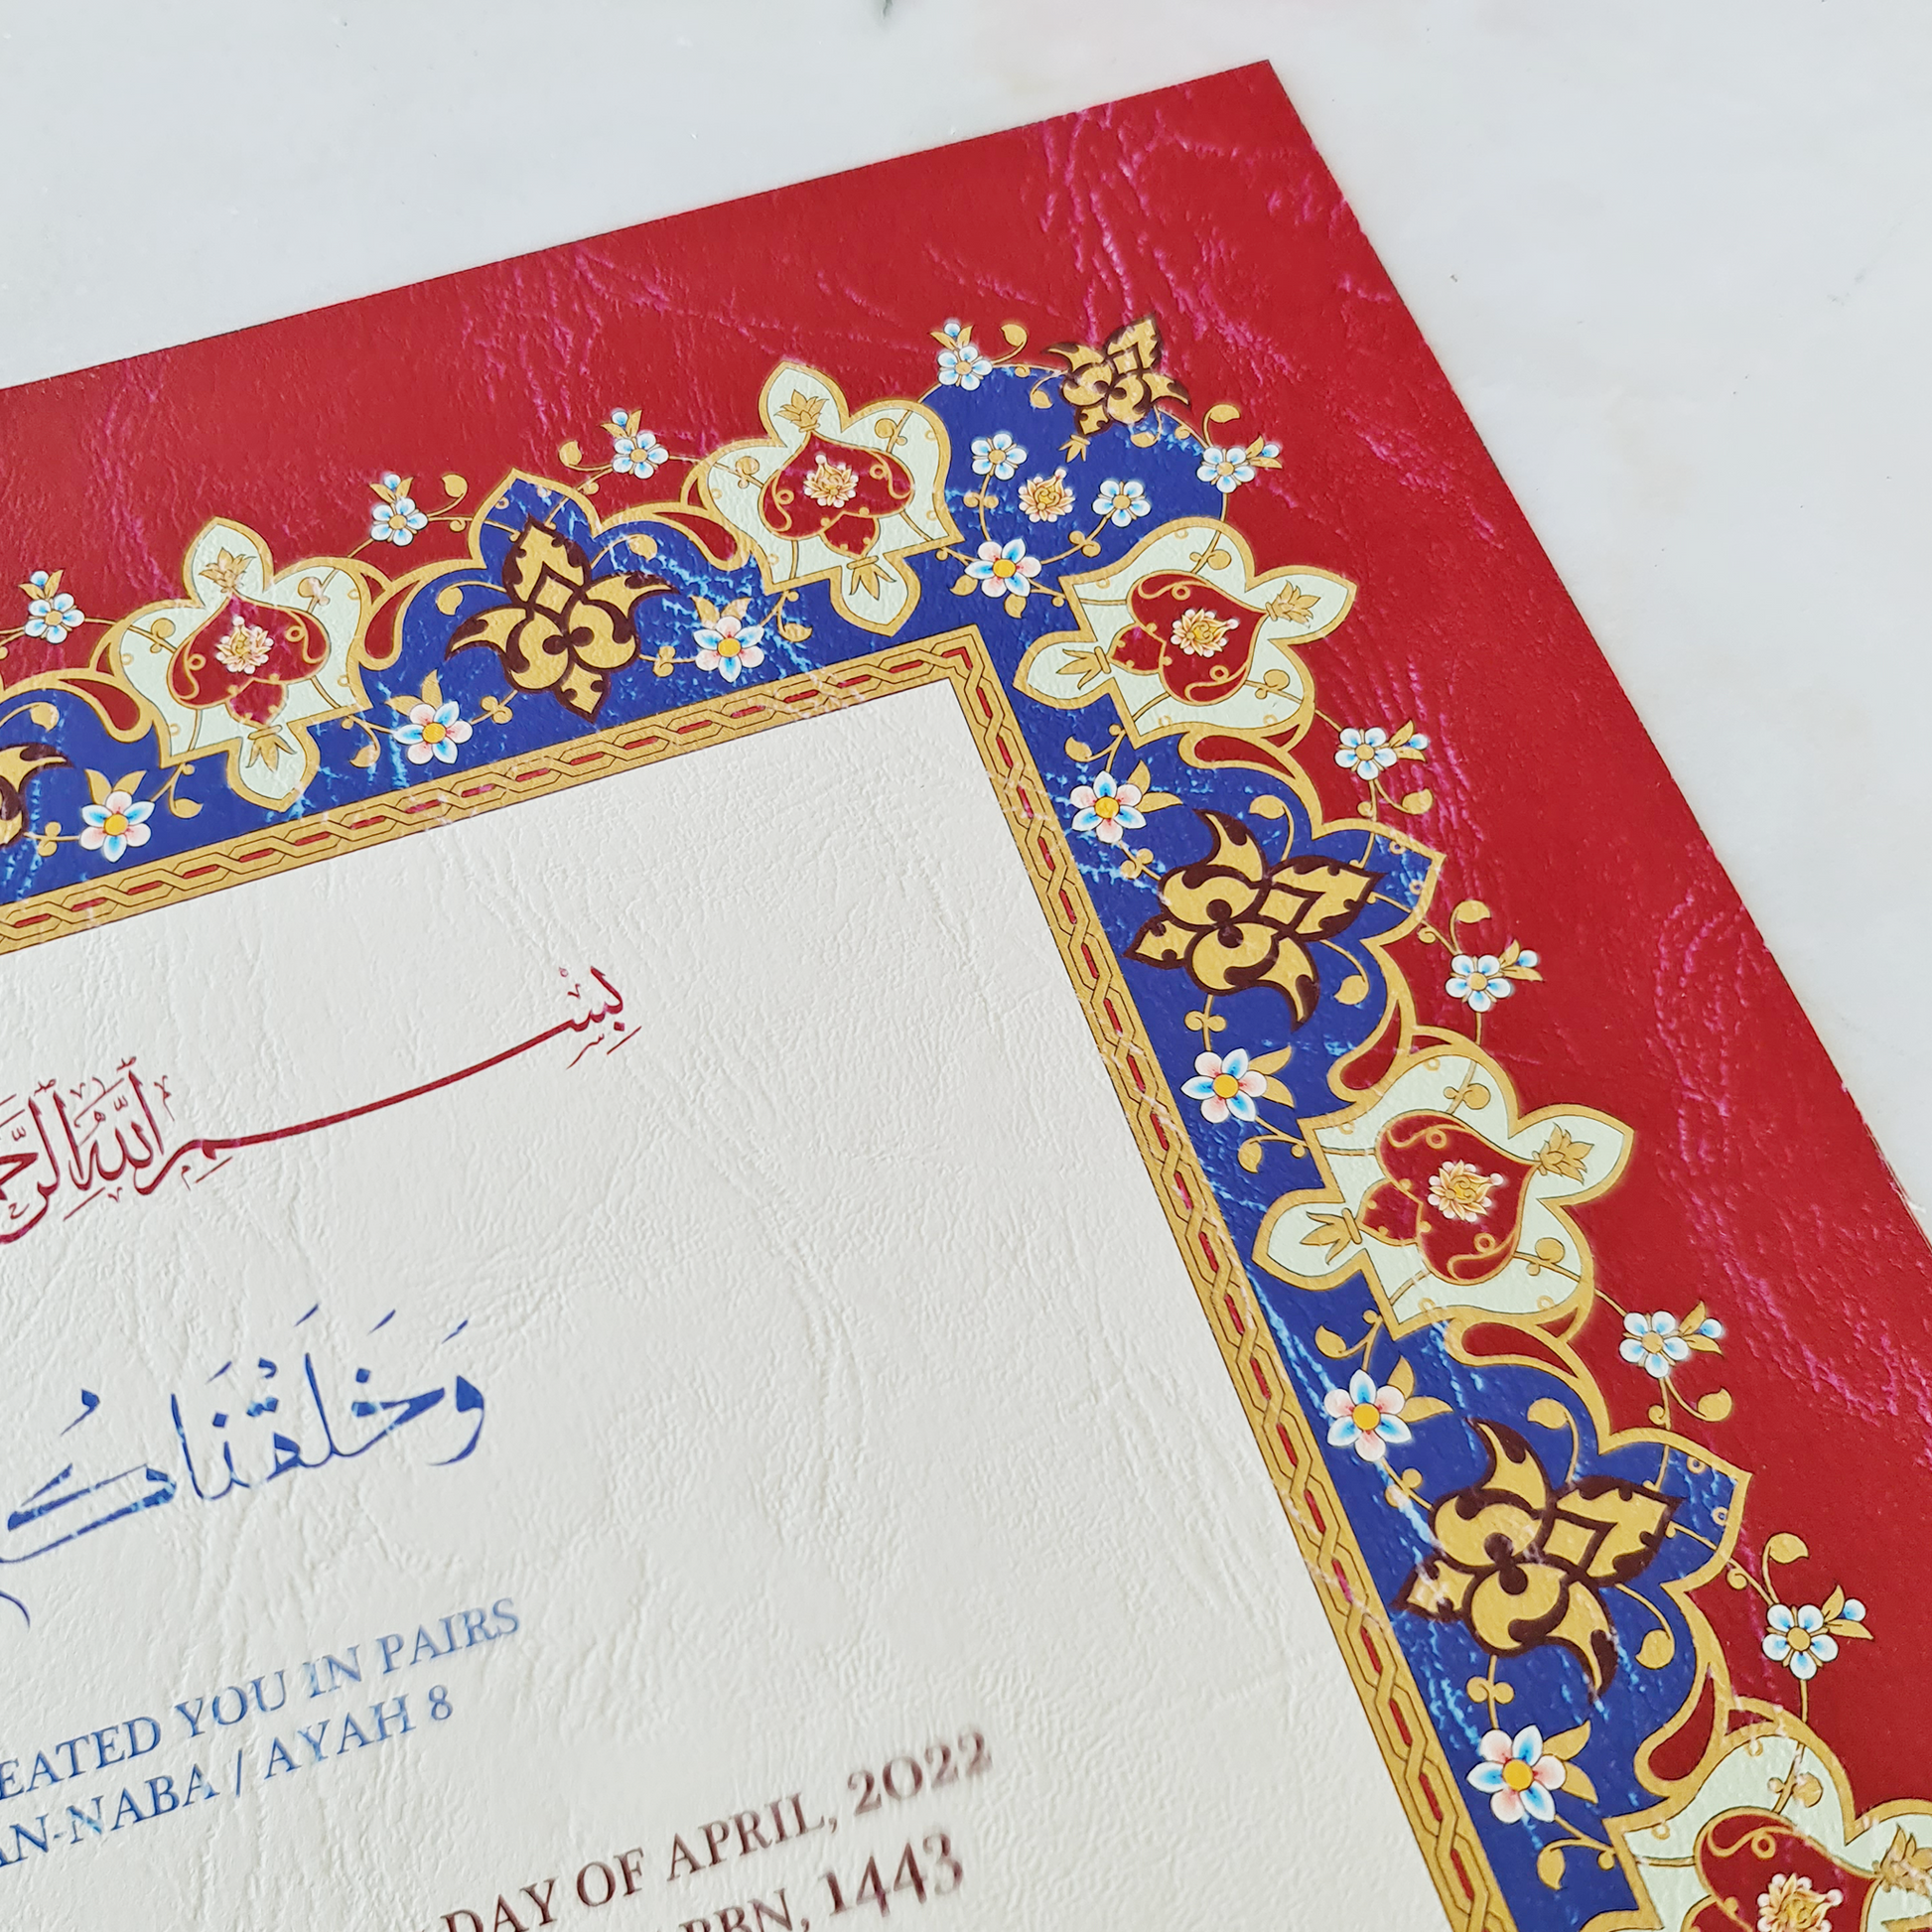 بِسْمِ اللَّهِ
وَخَلَقْنَاكُ
EATED YOU IN PAIRS
AN-NABA / AYAH 8
DAY OF APRIL, 2022
1443